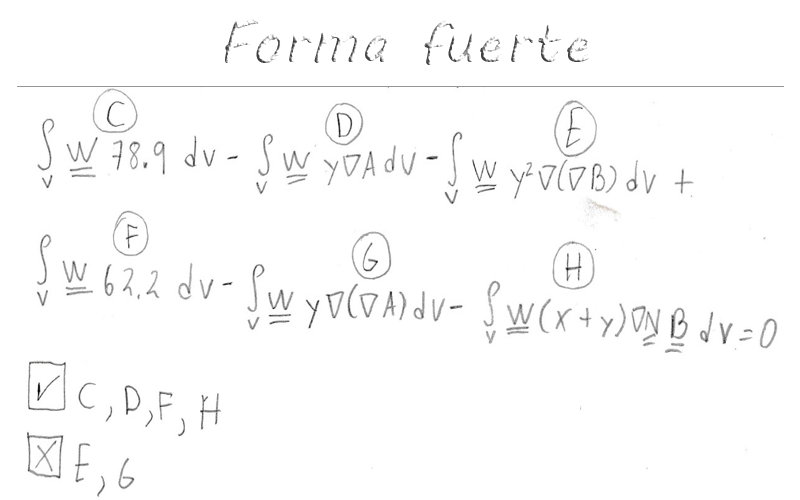 Forma fuerte
C D E
∫_V W 78.9 dv - ∫_V W y∇A dv - ∫_V W y²∇(∇B) dv +
F G H
∫_V W 62.2 dv - ∫_V W y∇(∇A) dv - ∫_V W (x+y)∇N B dv = 0
✓ C, D, F, H
X E, G